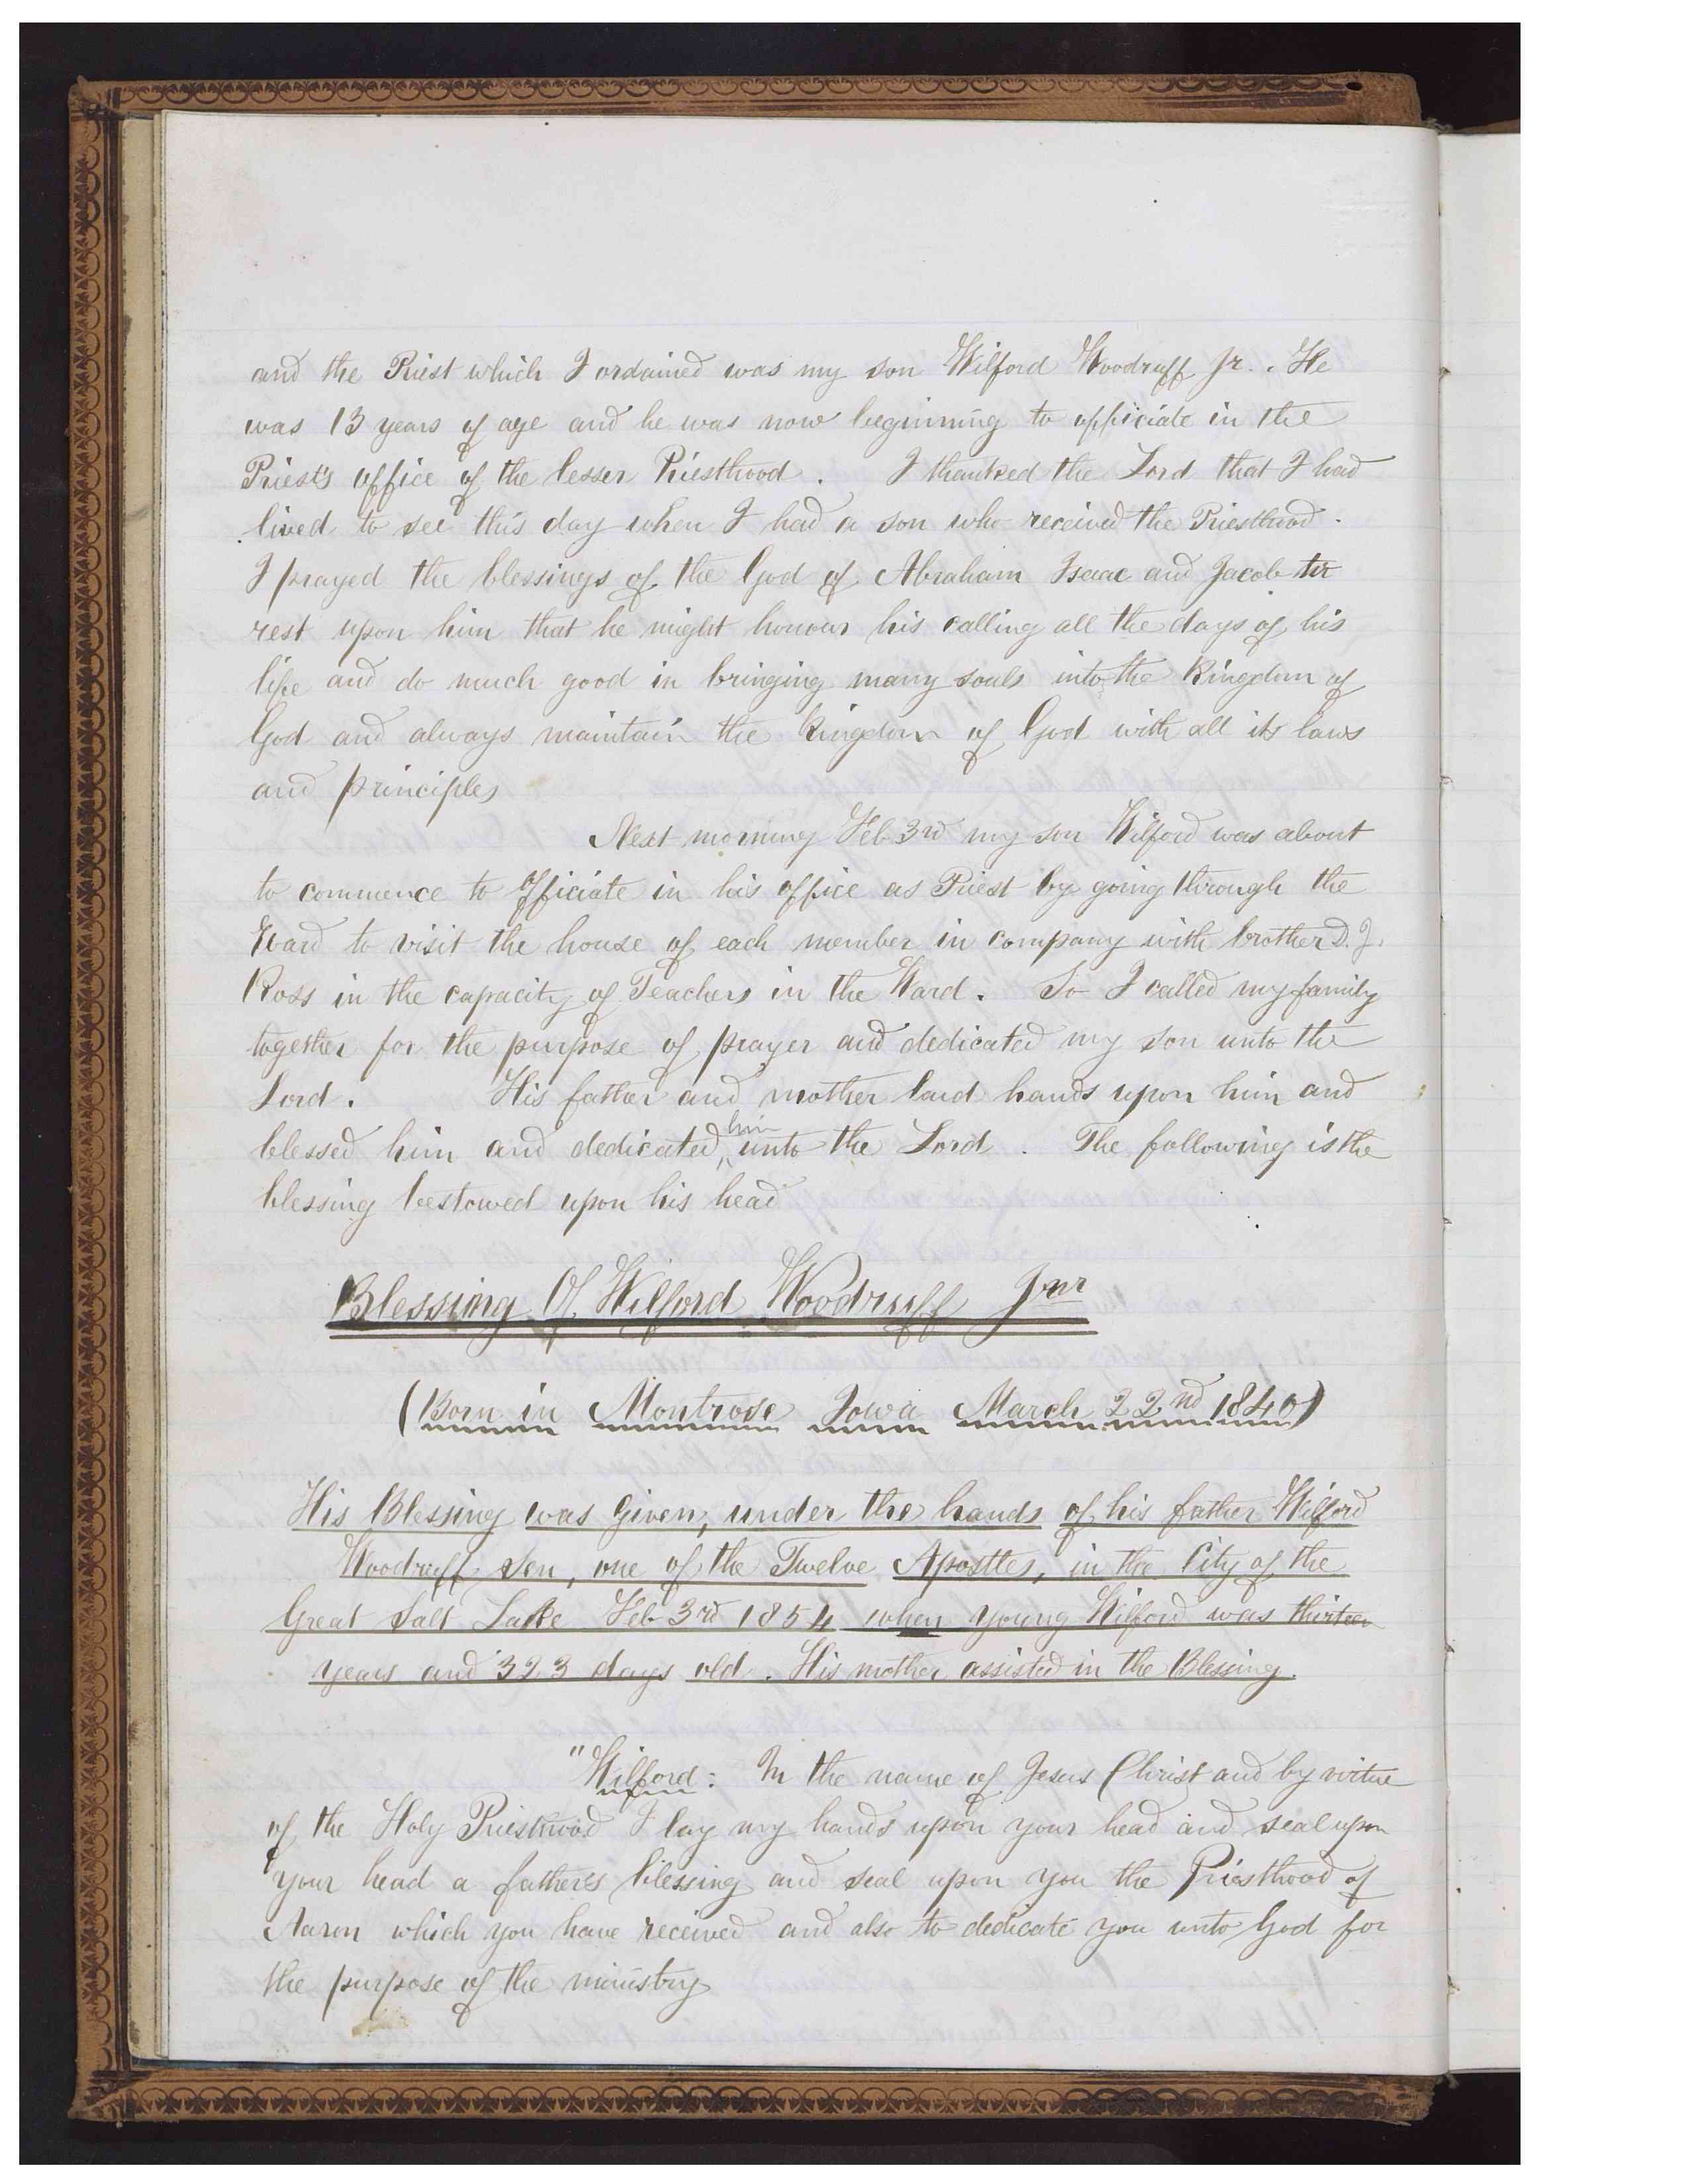 and the Priest which I ordained was my son Wilford Woodruff Jr. . He
was 13 years of age and he was now beginning to officiate in the
Priest's office of the lesser Priesthood . I thanked the Lord that I had
lived to see this day when I had a son who received the Priesthood .
I prayed the blessings of the God of Abraham Isaac and Jacob to
rest upon him that he might honour his calling all the days of his
life and do much good in bringing many souls into the Kingdom of
God and always maintain the Kingdom of God with all its laws
and principles
Next morning Feb 3rd my son Wilford was about
to commence to officiate in his office as Priest by going through the
Ward to visit the house of each member in company with brother D. J.
Ross in the capacity of Teachers in the Ward . So I called my family
together for the purpose of prayer and dedicated my son unto the
Lord . His father and mother laid hands upon him and
blessed him and dedicated him unto the Lord . The following is the
blessing bestowed upon his head
Blessing Of Wilford Woodruff Jnr
(Born in Montrose Iowa March 22nd 1840)
His Blessing was given, under the hands of his father Wilford
Woodruff Sen, one of the Twelve Apostles, in the City of the
Great Salt Lake Feb 3rd 1854 when young Wilford was thirteen
years and 323 days old . His mother assisted in the Blessing.
"Wilford: In the name of Jesus Christ and by virtue
of the Holy Priesthood I lay my hands upon your head and seal upon
your head a father's blessing and seal upon you the Priesthood of
Aaron which you have received and also to dedicate you unto God for
the purpose of the ministry